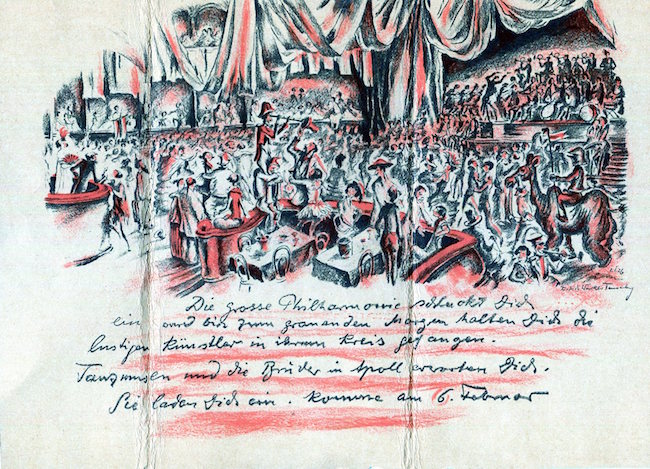 Die grosse Philharmonie schluckt Dich
ein und bis zum grauenden Morgen halten Dich die
lustigen Künstler in ihrem Kreis gefangen.
Tanzmusen und die Brüder in Apoll erwarten Dich.
Sie laden Dich ein. Komme am 6. Februar